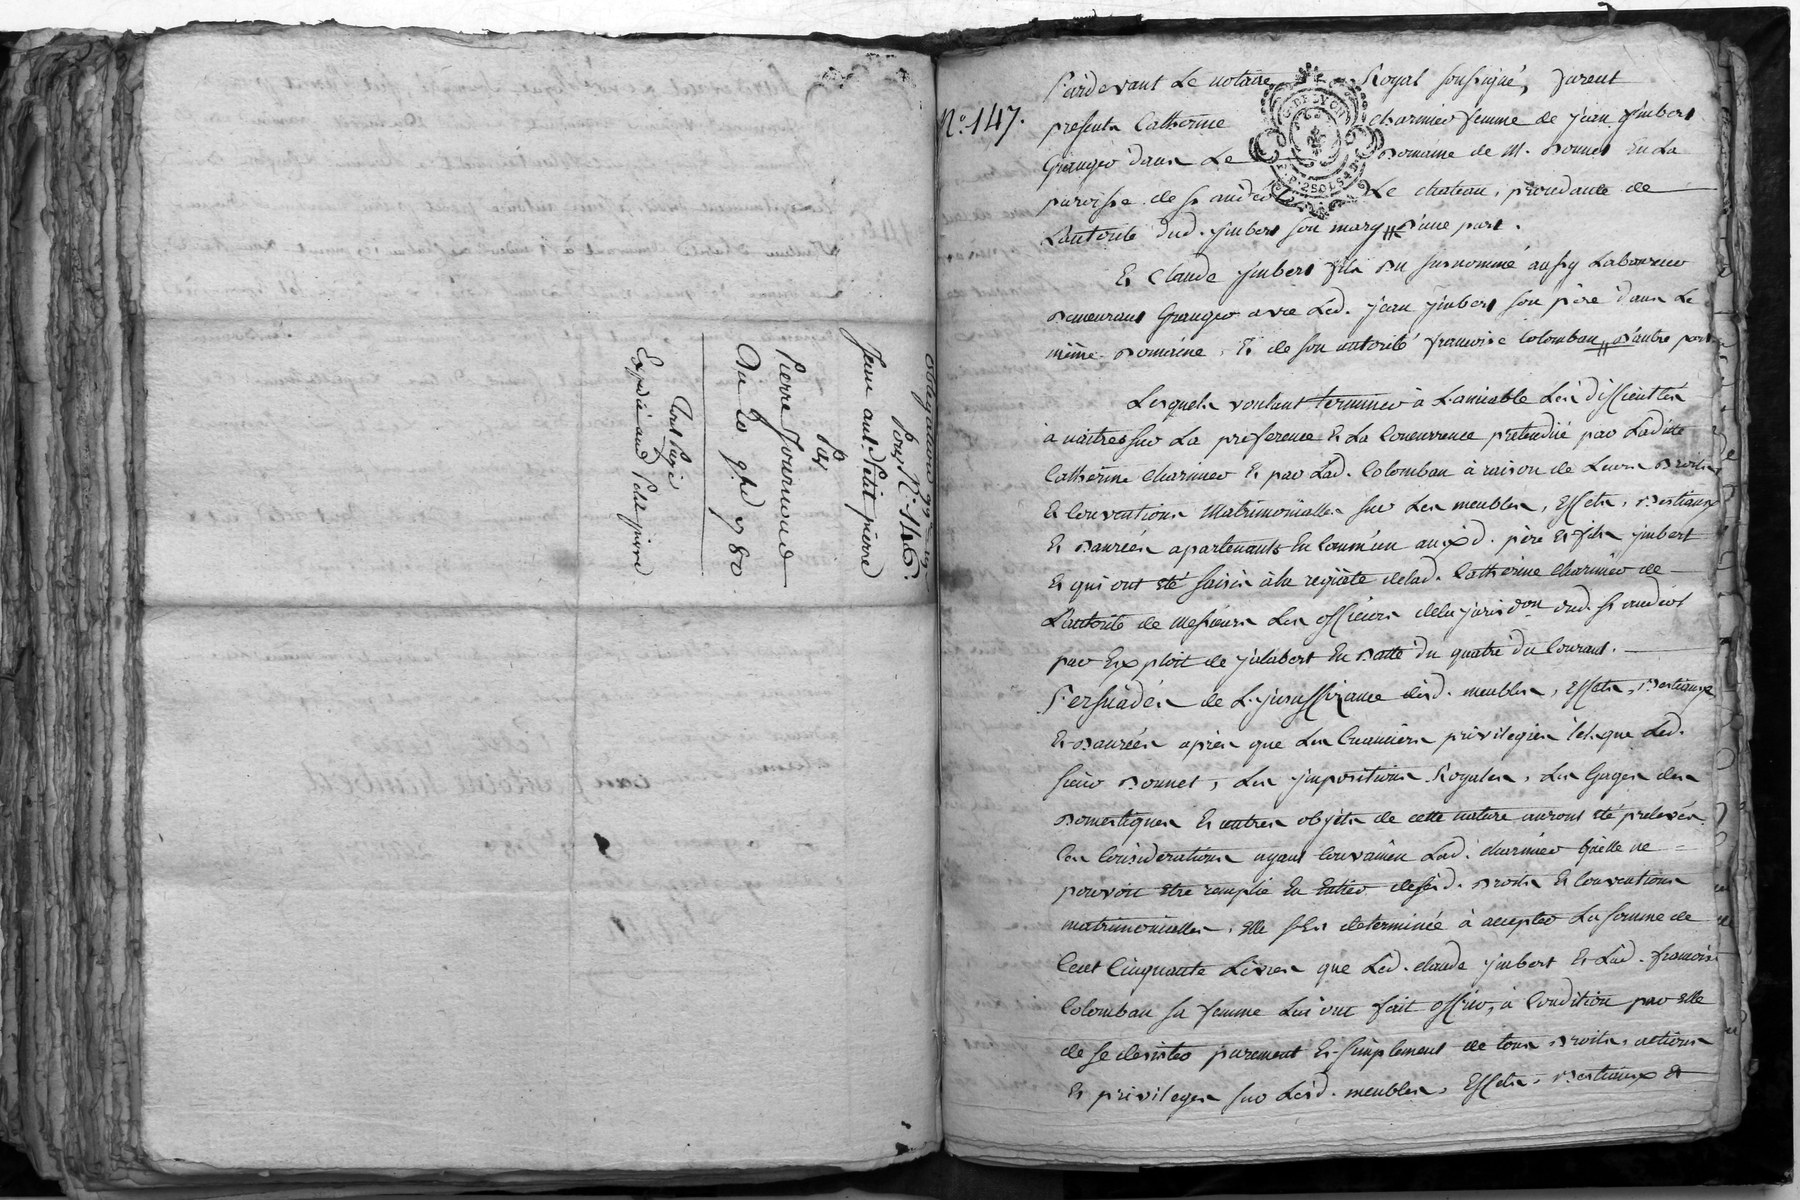 obligation
N°. 146.
Pour
Jean ant. Petit pierre
Par
Pierre Journoud
Du 20 9bre 1780.
Cont. Surie
Expédié aud Petit pierre
N°. 147.
Pardevant Le notaire Royal soussigné, furent
presents Catherine charmier femme de jean ymbert
Granger dans Le Domaine de M. Donnet En La
paroisse de St andéol Le chateau, procedante de
L'autorité dud. ymbert son mary d'une part.
Et Claude ymbert fils du susnommé aussy Laboureur
Demeurant Granger avec Led. jean ymbert son père dans Le
même Domaine, Et de son autorité françoise Colomban d'autre part
Lesquels voulant terminer à L'amiable Les difficultés
à naitre sur La preference Et La Concurrence pretendue par Ladite
Catherine charmier Et par Lad. Colomban à raison de Leurs Droits
Et Conventions Matrimonialles sur Les meubles, Effets, Bestiaux
Et Danrées apartenants En Commun auxd. père Et fils ymbert
Et qui ont été saisis à la requête de lad. Catherine charmier de
L'autorité de Messieurs Les officiers de la jurisdon dud. St andéol
par Exploit de jalabert En Datte du quatre du Courant.
Persuadés de L'jnsuffizance desd. meubles, Effets, Bestiaux
Et Danrées après que Les Creanciers privilegiés tels que Led.
sieur Donnet, Les jmpositions Royales, Les Gages des
Domestiques Et autres objets de cette nature auront été prelevés
Ces Considerations ayant Convaincu Lad. charmier qu'elle ne
pouvoit etre remplie En Entier de sesd. Droits Et Conventions
matrimonialles, Elle s'Est determinée à accepter La somme de
Cent Cinquante Livres que Led. claude ymbert Et Lad. françoise
Colomban sa femme Lui ont fait offrir, à Condition par Elle
de se desister purement Et simplement de tous Droits, actions
Et privileges sur Lesd. meubles, Effets, Bestiaux Et